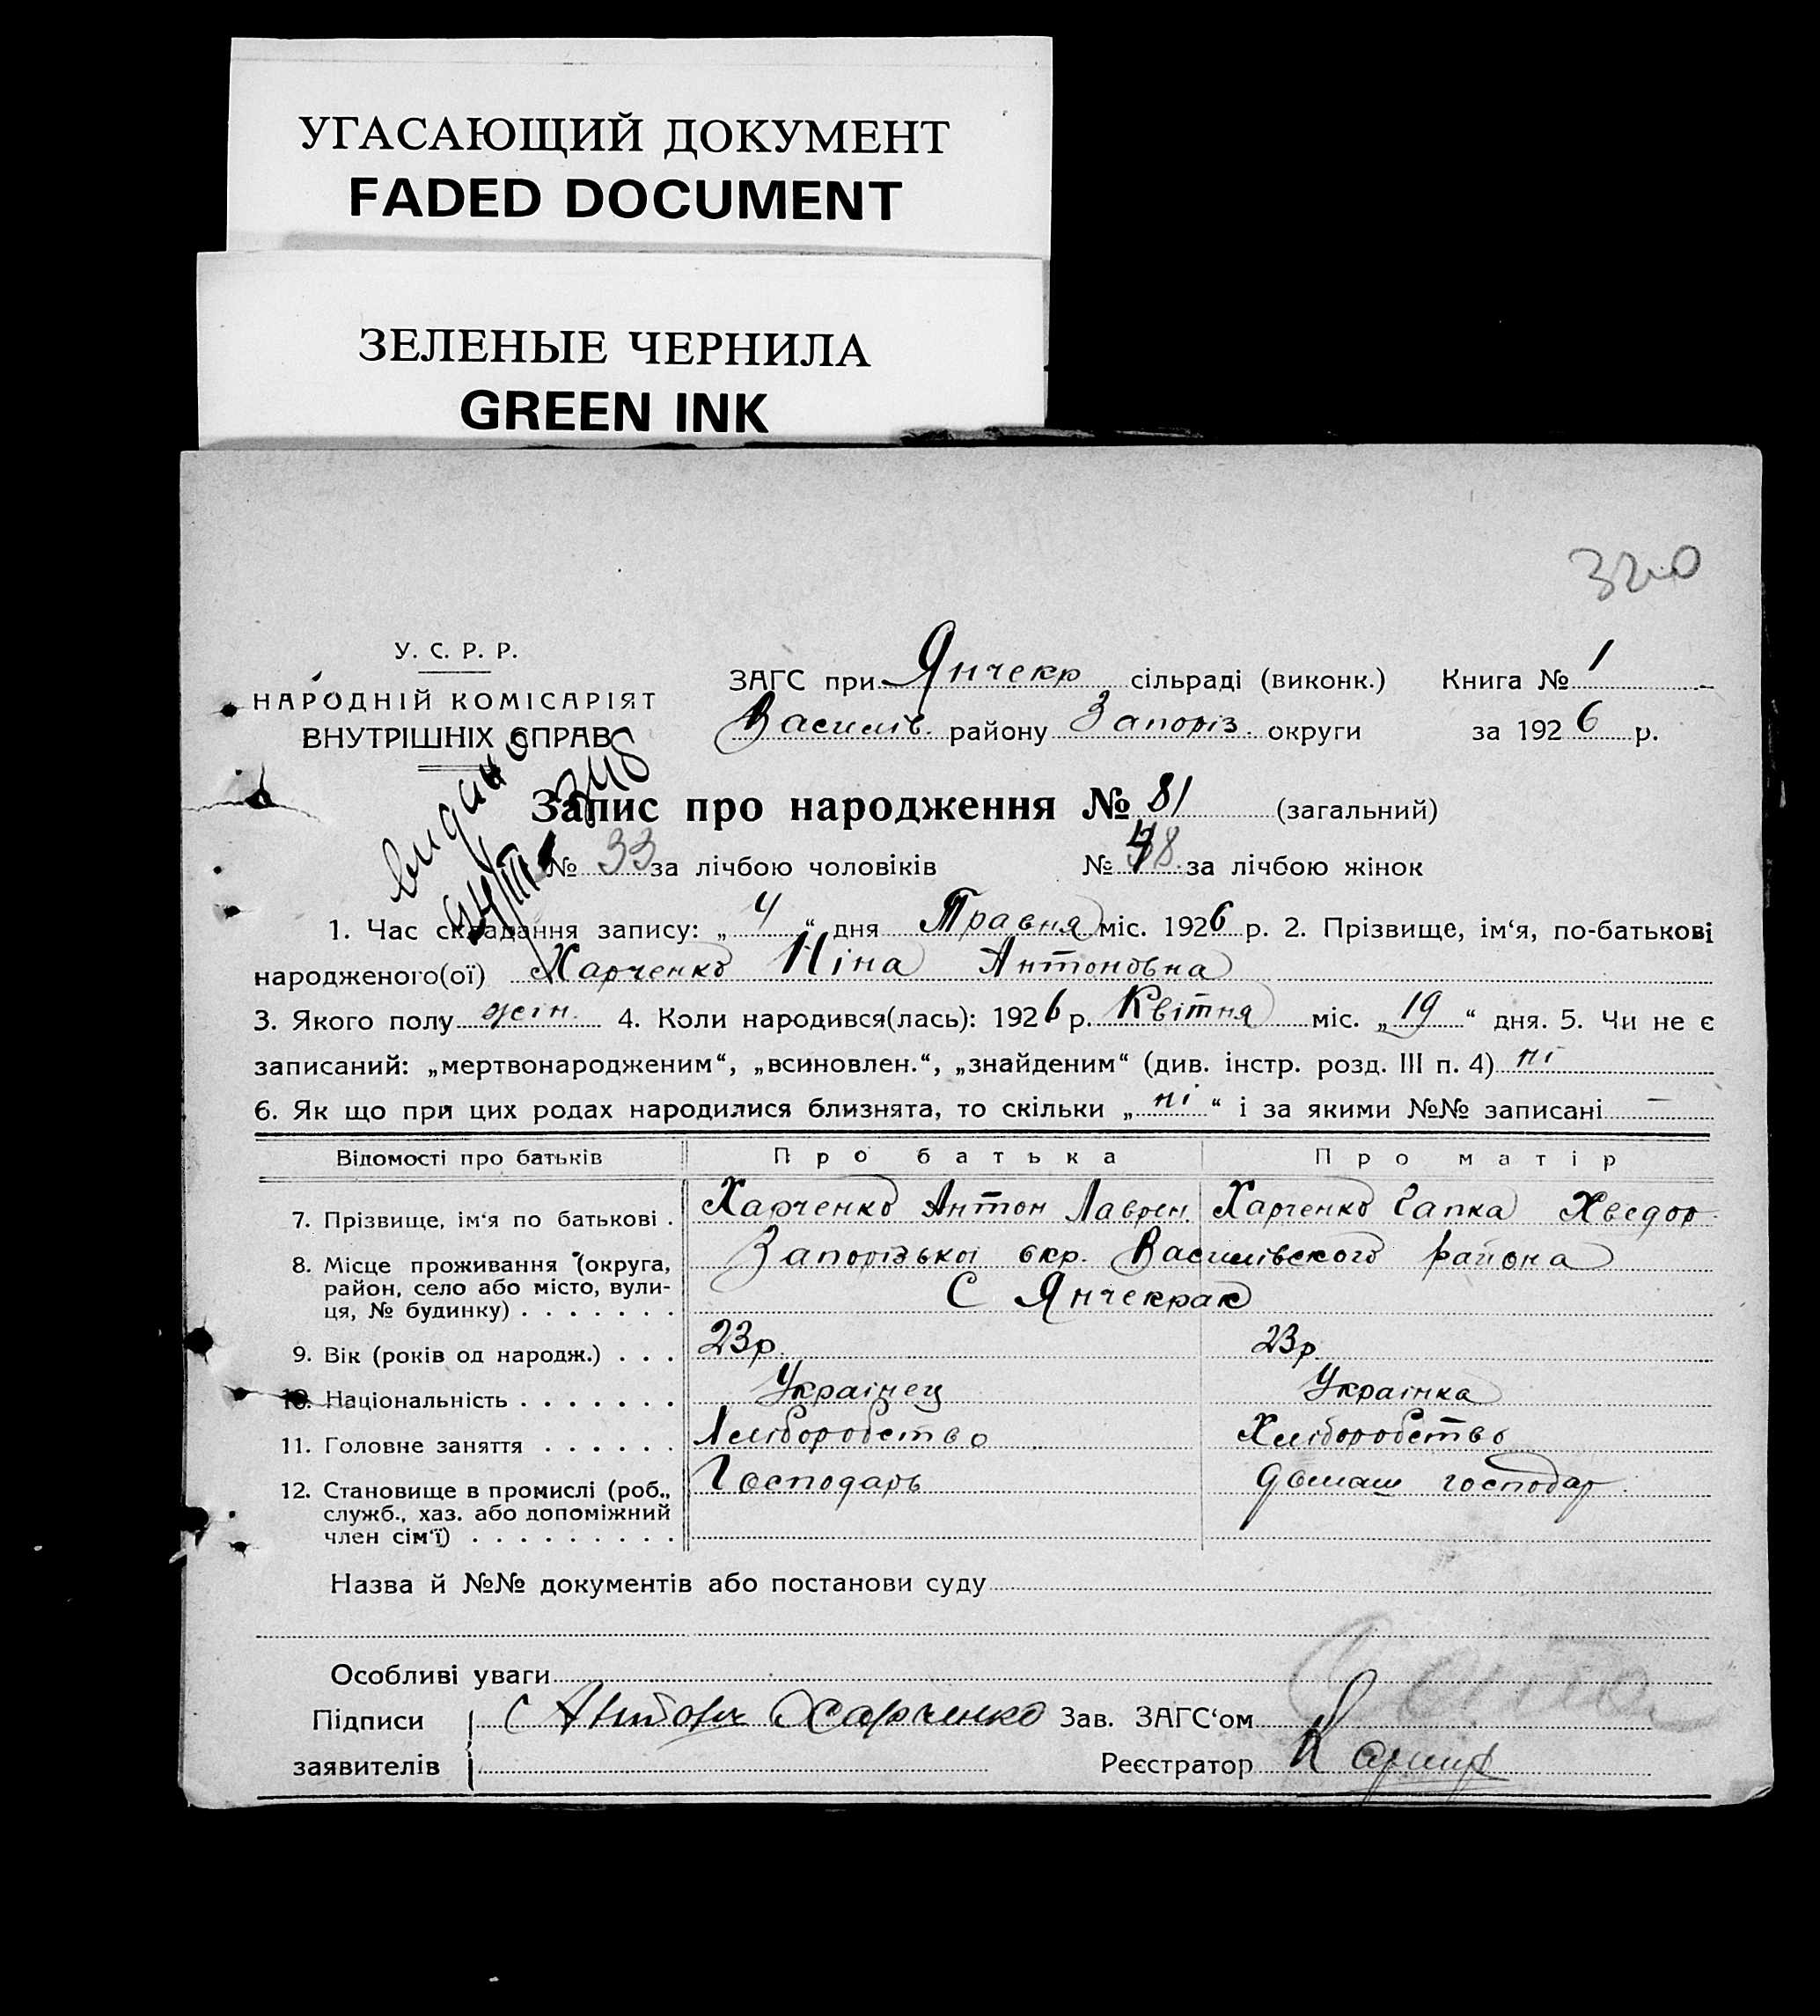 УГАСАЮЩИЙ ДОКУМЕНТ
FADED DOCUMENT
ЗЕЛЕНЫЕ ЧЕРНИЛА
GREEN INK
320
У. С. Р. Р.
НАРОДНІЙ КОМІСАРІЯТ
ВНУТРІШНІХ СПРАВ
ЗАГС при Янчекр сільраді (виконк.) Книга № 1
Василів. району Запоріз. округи за 1926 р.
видано
Запис про народження № 81 (загальний)
№ 33 за лічбою чоловіків № 48 за лічбою жінок
1. Час складання запису: „ 4 “ дня Травня міс. 1926 р. 2. Прізвище, ім‘я, по-батькові
народженого(ої) Харченко Ніна Антоновна
3. Якого полу жін. 4. Коли народився(лась): 1926 р. Квітня міс. „ 19 “ дня. 5. Чи не є
записаний: „мертвонародженим“, „всиновлен.“, „знайденим“ (див. інстр. розд. III п. 4) ні
6. Як що при цих родах народилися близнята, то скільки „ ні “ і за якими №№ записані —
Відомості про батьків Про батька Про матір
7. Прізвище, ім‘я по батькові . Харченко Антон Лаврен. Харченко Гапка Хведор
8. Місце проживання (округа, Запорізькоі окр. Василівского района
район, село або місто, вули- С Янчекрак
ця, № будинку) . . . . . . .
9. Вік (років од народж.) . . . 23р. 23р.
10. Національність . . . . . . . Украінец Украінка
11. Головне заняття . . . . . . Хліборобство Хліборобство
12. Становище в промислі (роб., Господарь домаш господар.
служб., хаз. або допоміжний
член сім‘ї) . . . . . . . . .
Назва й №№ документів або постанови суду
Особливі уваги
Підписи Антон Харченко Зав. ЗАГС‘ом
заявителів Реєстратор